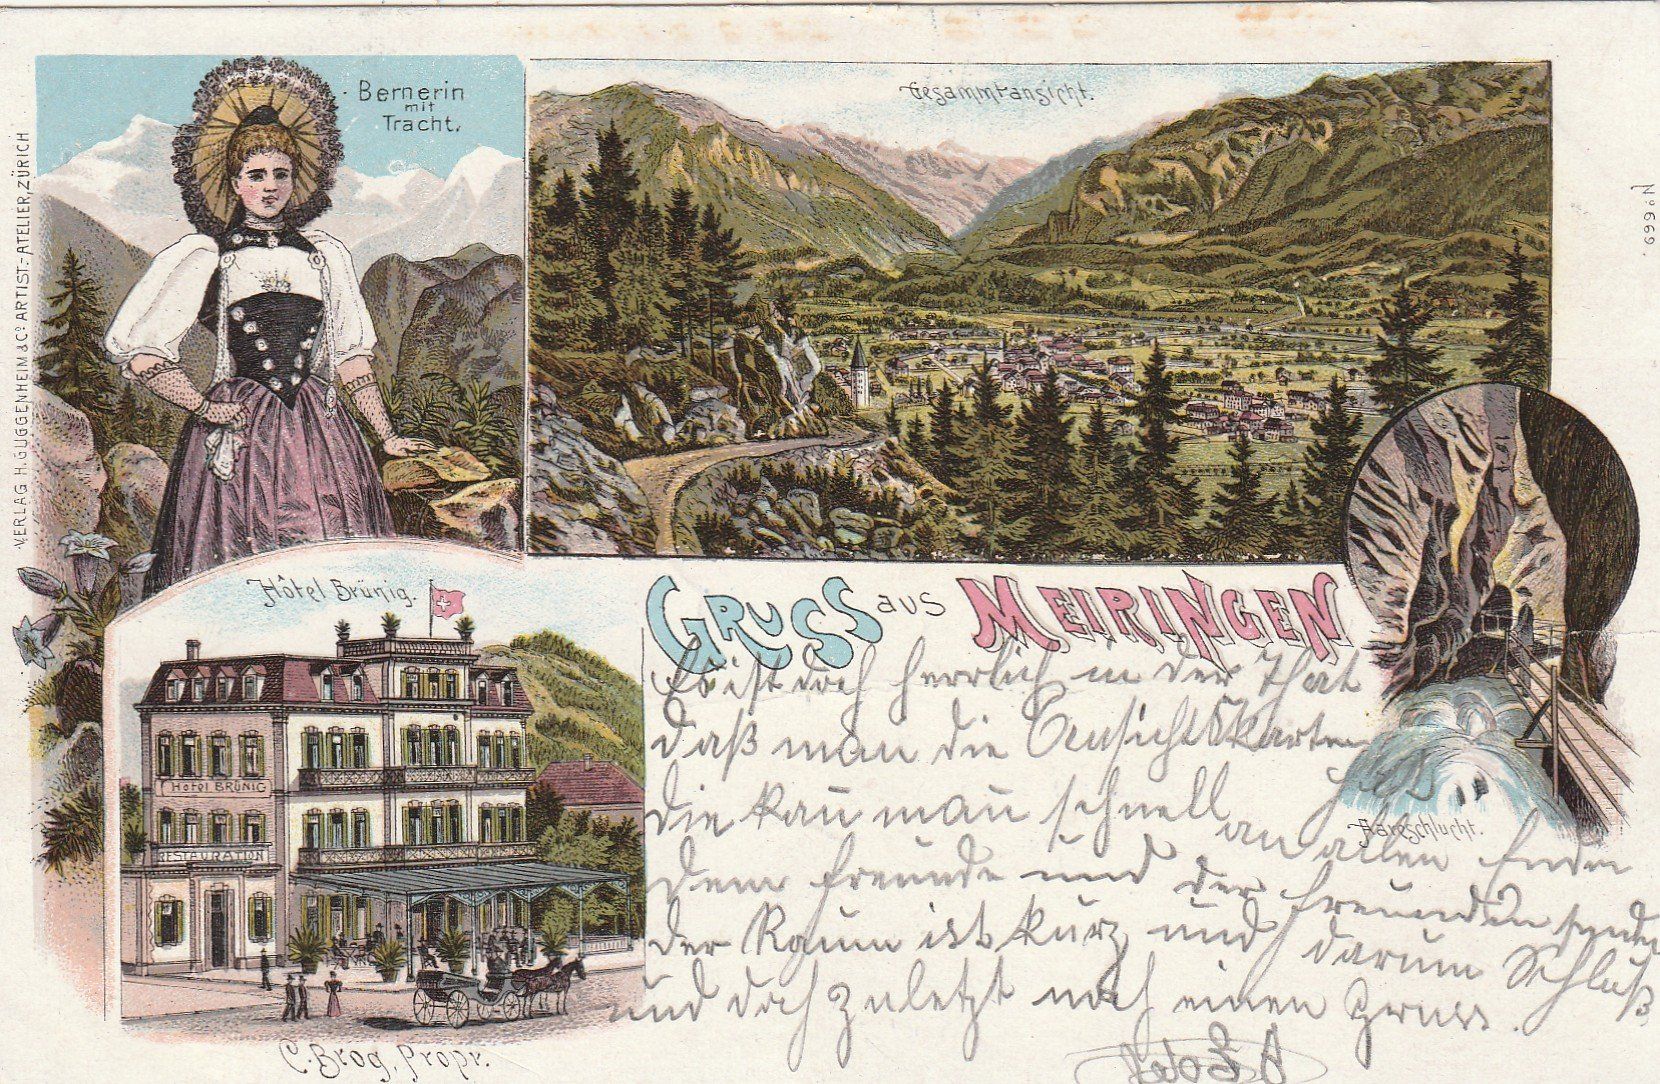 Bernerin
mit
Tracht.
Gesammtansicht.
VERLAG H. GUGGENHEIM & CO. ARTIST.-ATELIER, ZÜRICH
No 669.
Hôtel Brünig.
HOTEL BRÜNIG
RESTAURATION
C. Brog, Propr.
GRUSS aus MEIRINGEN
Aareschlucht.
Es ist doch herrlich in der That
daß man die Ansichtskarten hat
die kann man schnell an allen Enden
dem Freunde und der Freundin senden
der Raum ist kurz und darum Schluß
und doch zuletzt noch einen Gruss.